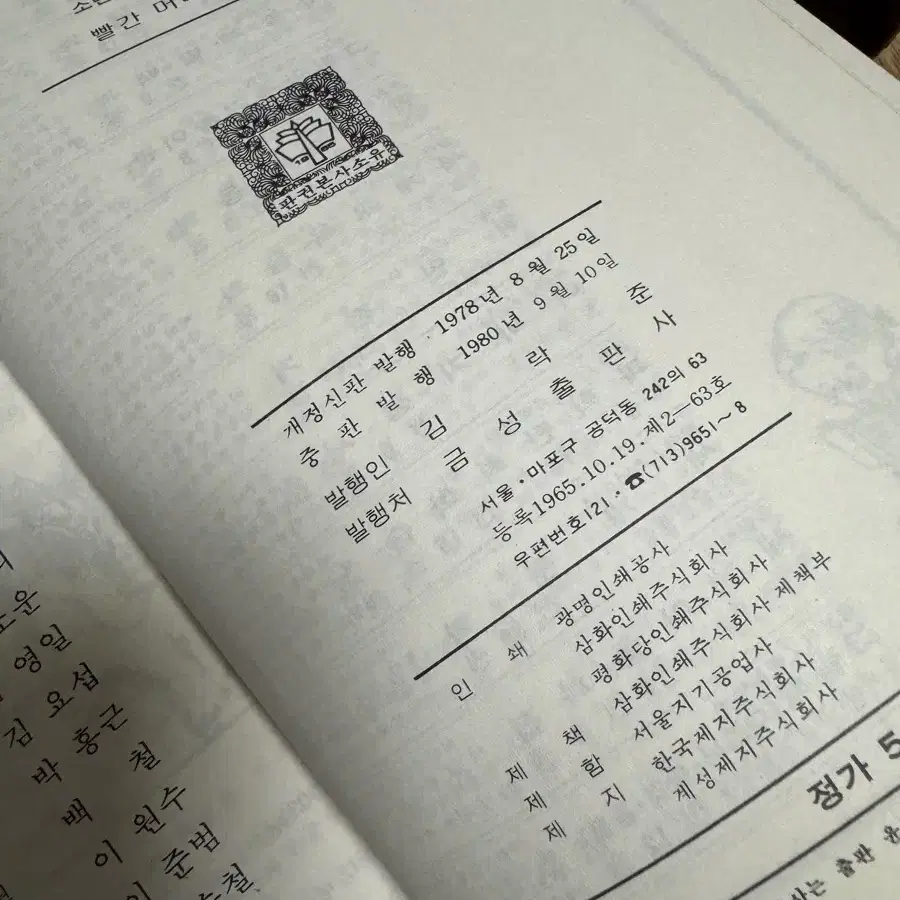 빨간
판권본사소유
개정신판 발행 · 1978년 8월 25일
중판발행 1980년 9월 10일
발행인 김락준
발행처 금성출판사
서울·마포구 공덕동 242의 63
등록1965.10.19.제2—63호
우편번호121·☎(713)9651~8
인쇄 광명인쇄공사
삼화인쇄주식회사
평화당인쇄주식회사
제책 삼화인쇄주식회사 제책부
제함 서울지기공업사
제지 한국제지주식회사
계성제지주식회사
정가 5
영일
김요섭
박홍근
백철
이원수
이준범